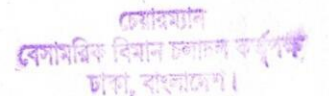 চেয়ারম্যান
বেসামরিক বিমান চলাচল কর্তৃপক্ষ
ঢাকা, বাংলাদেশ।